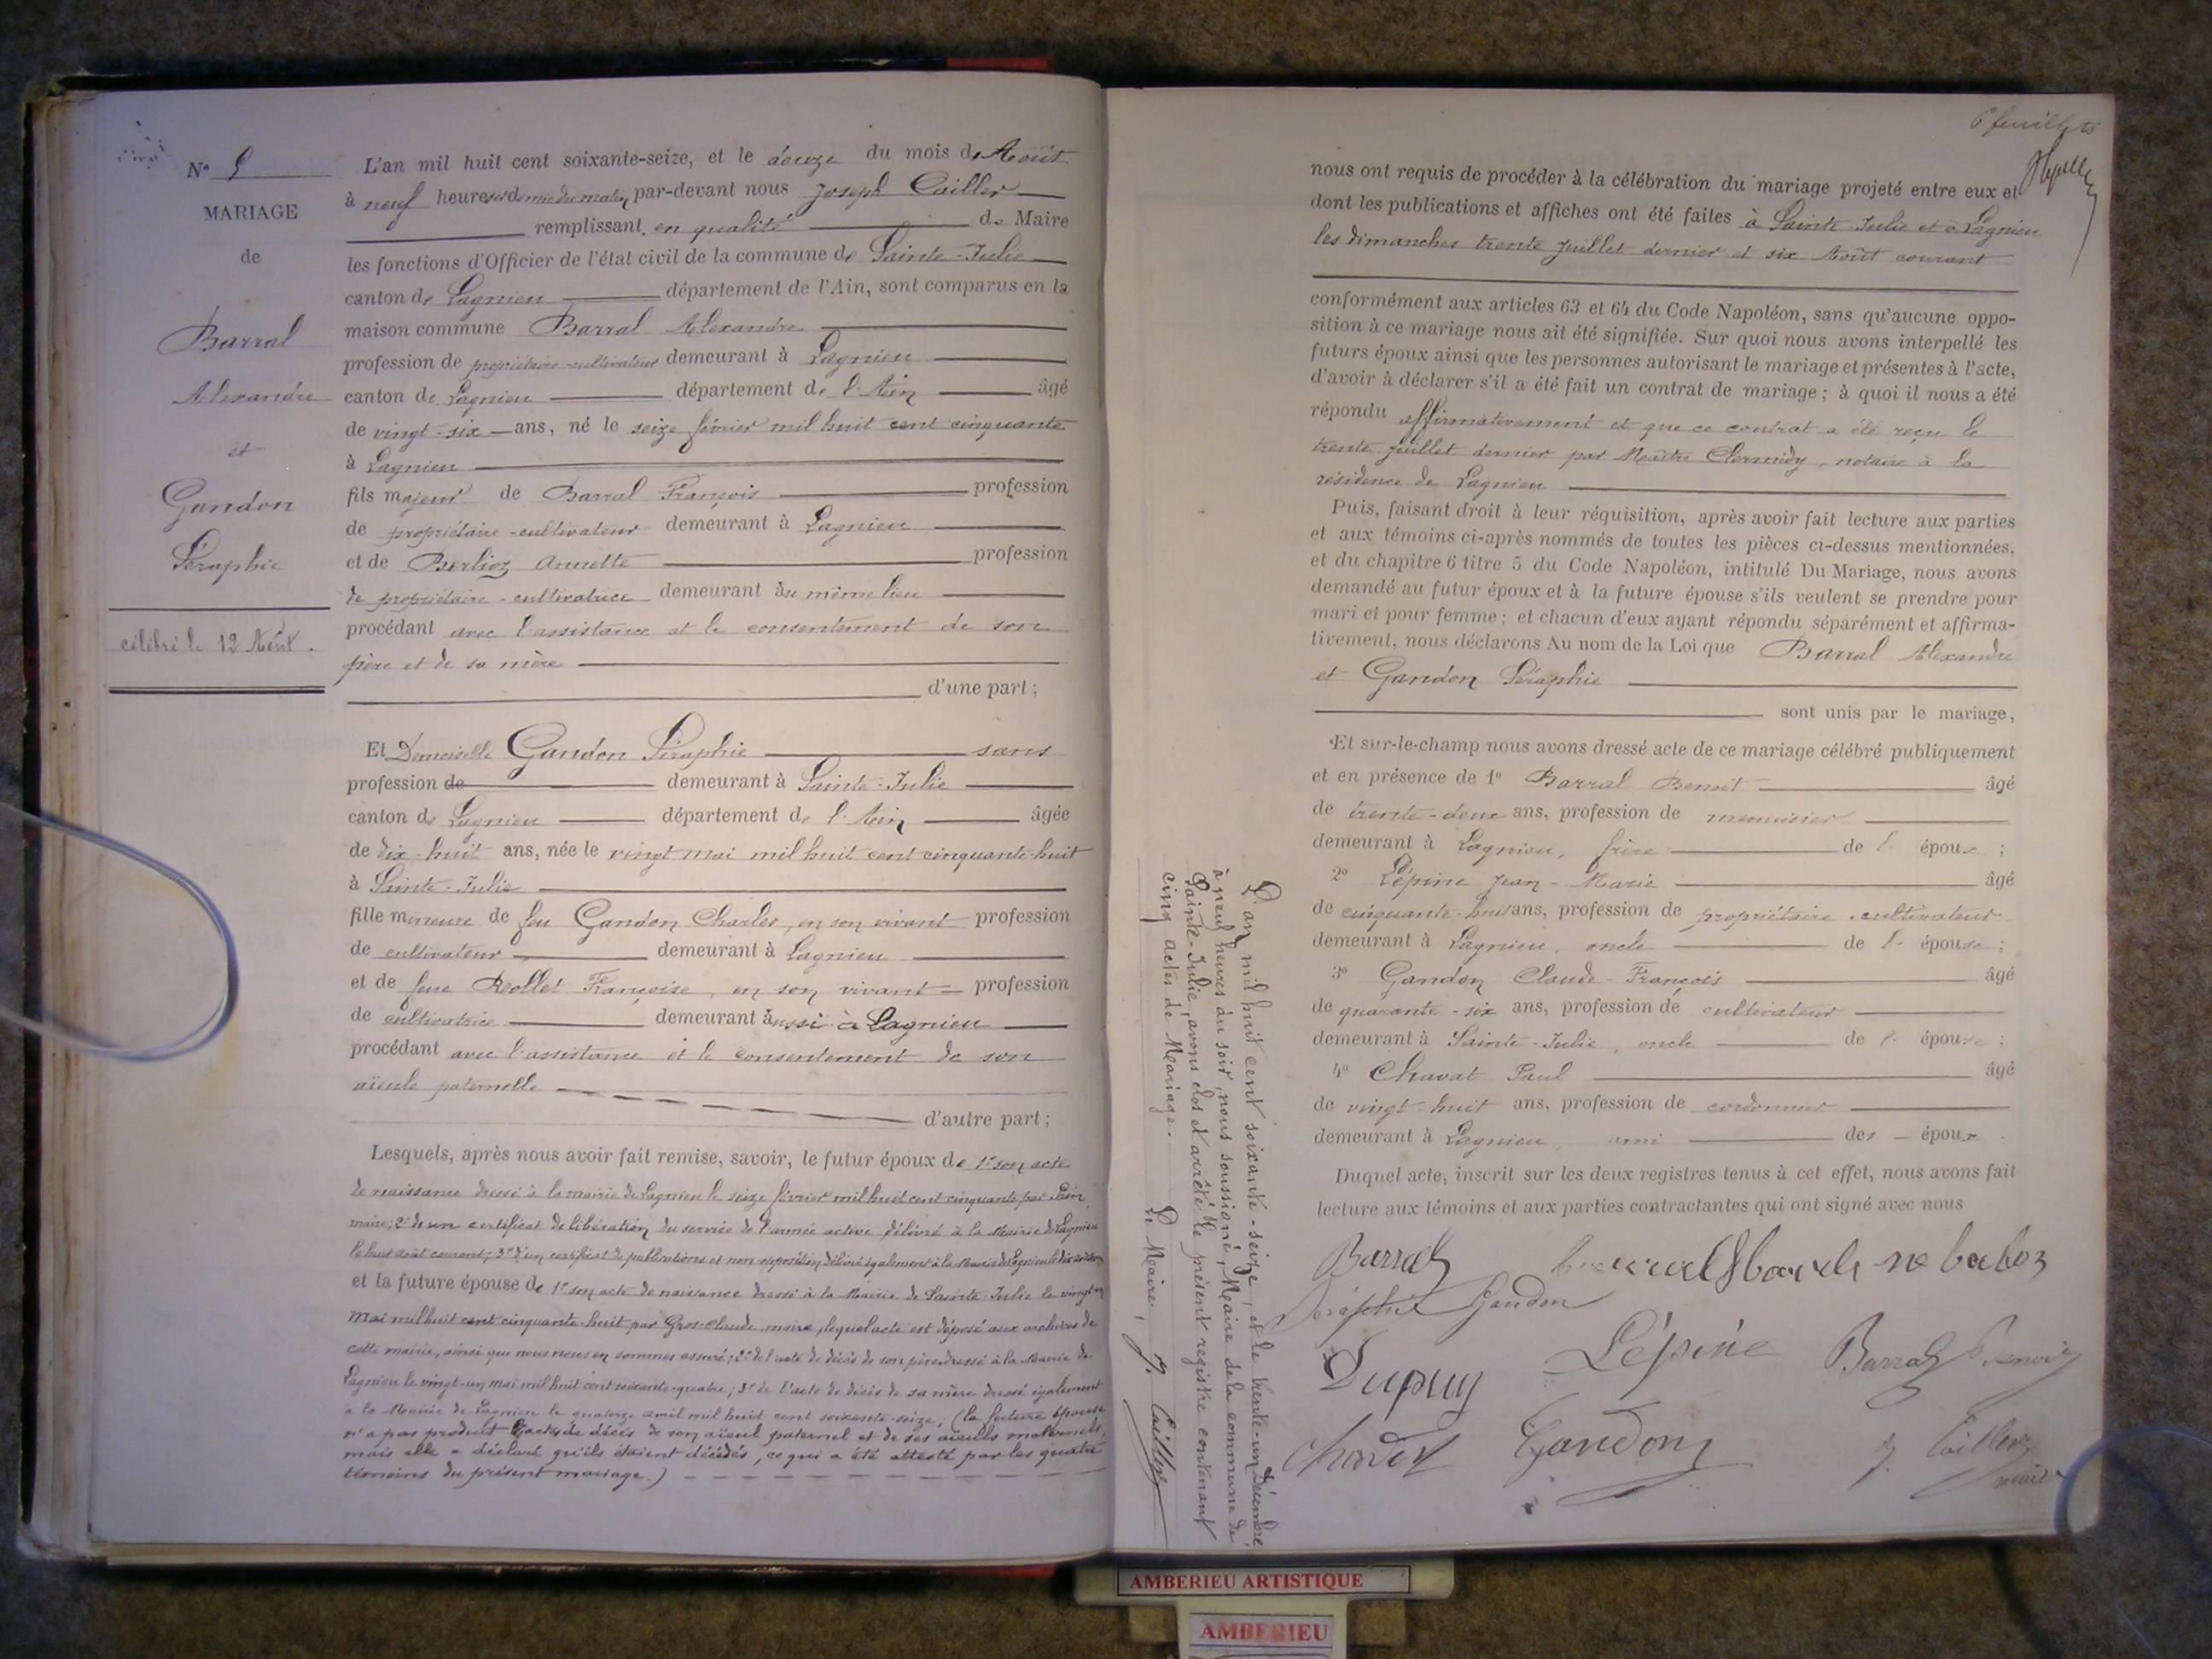 N° 5
MARIAGE
de
Barral
Alexandre
et
Gandon
Séraphie
célébré le 12 Août.
L'an mil huit cent soixante-seize, et le douze du mois de Août
à neuf heures et demie du matin par-devant nous Joseph Cailler
remplissant en qualité de Maire
les fonctions d'Officier de l'état civil de la commune de Sainte-Julie
canton de Lagnieu département de l'Ain, sont comparus en la
maison commune Barral Alexandre
profession de propriétaire-cultivateur demeurant à Lagnieu
canton de Lagnieu département de l'Ain âgé
de vingt-six ans, né le seize février mil huit cent cinquante
à Lagnieu
fils majeur de Barral François profession
de propriétaire-cultivateur demeurant à Lagnieu
et de Berlioz Annette profession
de propriétaire-cultivatrice demeurant au même lieu
procédant avec l'assistance et le consentement de son
père et de sa mère
d'une part;
Et Demoiselle Gandon Séraphie sans
profession de demeurant à Sainte-Julie
canton de Lagnieu département de l'Ain âgée
de dix-huit ans, née le vingt mai mil huit cent cinquante-huit
à Sainte-Julie
fille mineure de feu Gandon Charles, en son vivant profession
de cultivateur demeurant à Lagnieu
et de feue Rollet Françoise, en son vivant profession
de cultivatrice demeurant aussi à Lagnieu
procédant avec l'assistance et le consentement de son
aïeule paternelle
d'autre part;
Lesquels, après nous avoir fait remise, savoir, le futur époux de 1° son acte
de naissance dressé à la mairie de Lagnieu le seize février mil huit cent cinquante par
maire; 2° de un certificat de libération du service de l'armée active délivré à la Mairie de Lagnieu
le huit août courant; 3° d'un certificat de publications et non opposition délivré également à la Mairie de Lagnieu le
et la future épouse de 1° son acte de naissance dressé à la Mairie de Sainte-Julie le vingt
mai mil huit cent cinquante-huit par Gros-Claude, maire, lequel acte est déposé aux archives de
cette mairie, ainsi que nous nous en sommes assuré; 2° de l'acte de décès de son père dressé à la Mairie de
Lagnieu le vingt-un mai mil huit cent soixante-quatre; 3° de l'acte de décès de sa mère dressé également
à la Mairie de Lagnieu le quatorze avril mil huit cent soixante-seize; (la future épouse
n'a pas produit les actes de décès de son aïeul paternel et de ses aïeuls maternels,
mais elle a déclaré qu'ils étaient décédés, ce qui a été attesté par les quatre
témoins du présent mariage.)
6 feuillets
nous ont requis de procéder à la célébration du mariage projeté entre eux et
dont les publications et affiches ont été faites à Sainte-Julie et à Lagnieu
les dimanches trente Juillet dernier et six Août courant
conformément aux articles 63 et 64 du Code Napoléon, sans qu'aucune oppo-
sition à ce mariage nous ait été signifiée. Sur quoi nous avons interpellé les
futurs époux ainsi que les personnes autorisant le mariage et présentes à l'acte,
d'avoir à déclarer s'il a été fait un contrat de mariage; à quoi il nous a été
répondu affirmativement et que ce contrat a été reçu le
trente juillet dernier par Maître Clermidy, notaire à la
résidence de Lagnieu
Puis, faisant droit à leur réquisition, après avoir fait lecture aux parties
et aux témoins ci-après nommés de toutes les pièces ci-dessus mentionnées,
et du chapitre 6 titre 5 du Code Napoléon, intitulé Du Mariage, nous avons
demandé au futur époux et à la future épouse s'ils veulent se prendre pour
mari et pour femme; et chacun d'eux ayant répondu séparément et affirma-
tivement, nous déclarons Au nom de la Loi que Barral Alexandre
et Gandon Séraphie
sont unis par le mariage,
Et sur-le-champ nous avons dressé acte de ce mariage célébré publiquement
et en présence de 1° Barral Benoit âgé
de trente-deux ans, profession de menuisier
demeurant à Lagnieu, frère de l' époux;
2° Lépine Jean-Marie âgé
de cinquante-huit ans, profession de propriétaire-cultivateur
demeurant à Lagnieu, oncle de l' épouse;
3° Gandon Claude-François âgé
de quarante-six ans, profession de cultivateur
demeurant à Sainte-Julie, oncle de l' épouse;
4° Chavat Paul âgé
de vingt-huit ans, profession de cordonnier
demeurant à Lagnieu ami des époux.
Duquel acte, inscrit sur les deux registres tenus à cet effet, nous avons fait
lecture aux témoins et aux parties contractantes qui ont signé avec nous
Barral
Séraphie Gandon
Dupuy Lépine Barral Benoit
Chavat Gandon J. Cailler
maire
L'an mil huit cent soixante-seize, et le trente-un Décembre,
à neuf heures du soir, nous soussigné, Maire de la commune de
Sainte-Julie, avons clos et arrêté le présent registre contenant
cinq actes de Mariage. Le Maire, J. Cailler
AMBERIEU ARTISTIQUE
AMBERIEU